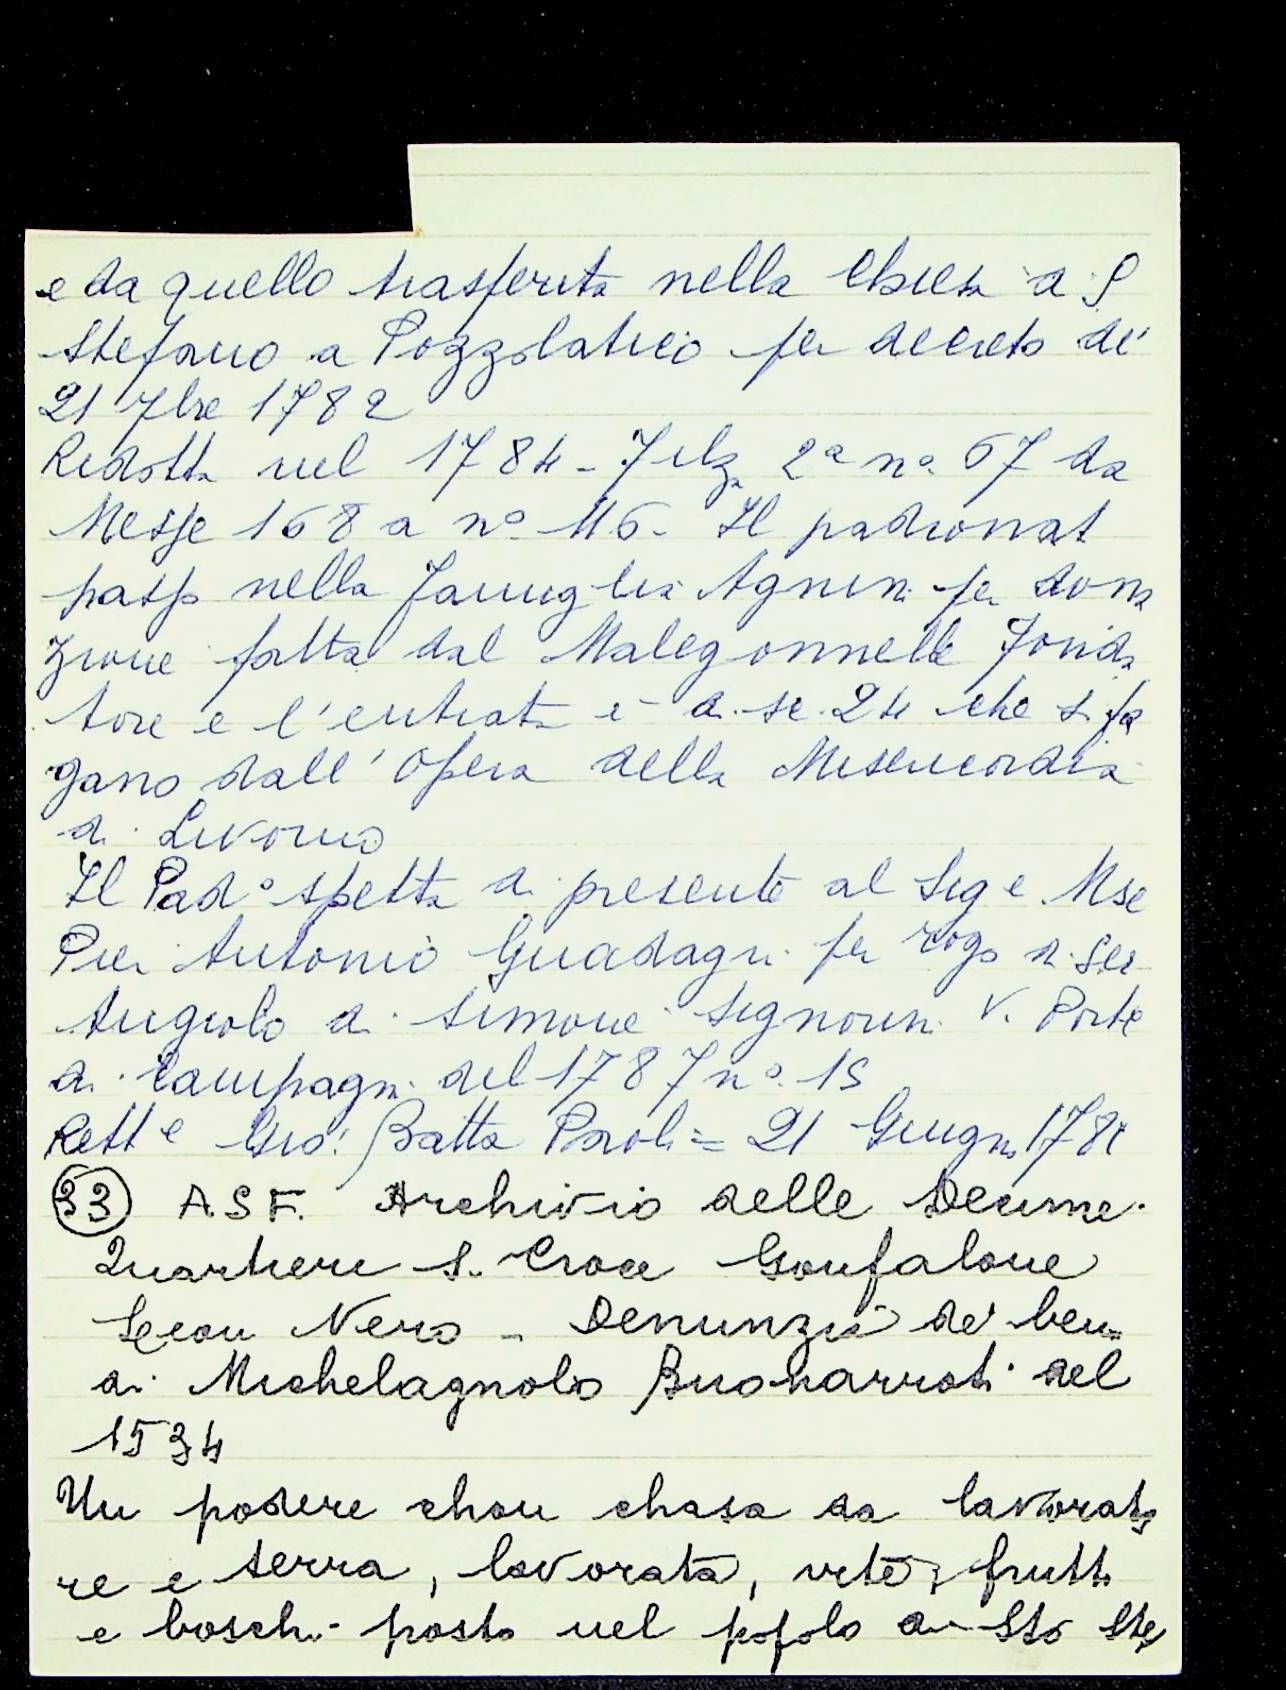 e da quello trasferita nella Chiesa di S
Stefano a Pozzolatico per decreto de'
21 7bre 1782
Ridotta nel 1784 - Filz 2a no. 67 da
Messe 168 a no 116. Il padronat
passò nella Famiglia Agnini per dona
zione fatta dal Malegonnelle Fonda
tore e l'entrata è di sc. 24 che si pa
gano dall'Opera della Misericordia
di Livorno
Il Pado spetta di presente al Sige Mse
Pier Antonio Guadagni per rogo di Ser
Angiolo di Simone Signorini V. Porte
di Campagni del 1787 no. 15
Rette Gio: Batta Paoli = 21 Giugno 178
33 A.S.F. Archivio delle Decime.
Quartiere S. Croce Gonfalone
Leon Nero - Denunzie de' beni
di Michelagnolo Buonarroti del
1534
Un podere chon chasa da lavorato
re e terra, lavorata, vite, frutti
e boschi posto nel popolo di Sto Ste